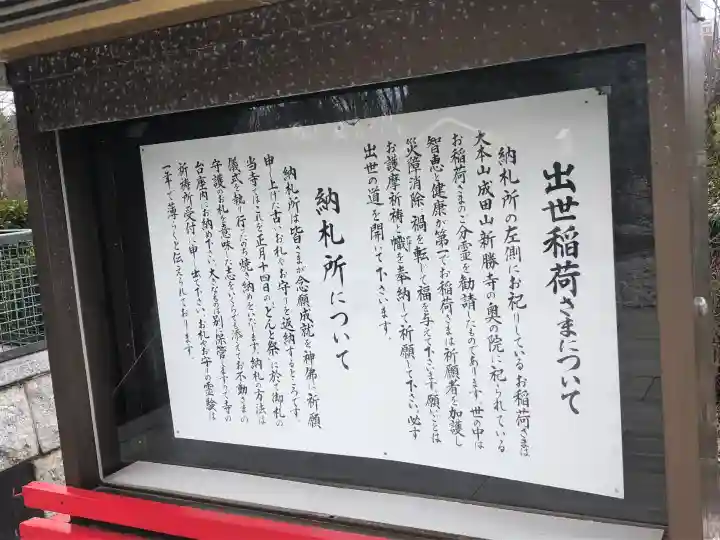 出世稲荷さまについて
納札所の左側にお祀りしているお稲荷さまは
大本山成田山新勝寺の奥の院に祀られている
お稲荷さまのご分霊を勧請したものであります。世の中は
智恵と健康が第一でお稲荷さまは祈願者を加護し
災障消除 禍を転じて福を与えて下さいます。願いごとは
お護摩祈祷と幟を奉納して祈願して下さい。必ず
出世の道を開いて下さいます。
納札所について
納札所は皆さまが念願成就を神佛に祈願
申し上げた古いお札やお守りを返納するところです。
当寺ではこれを正月十四日の「どんと祭」に於て御札の
儀式を執り行ったのち焼き納めをいたします。納札の方法は
守護のお札を意味した志をいくらでも添えてお不動さまの
台座内にお納め下さい。大きなものは別に保管しますので寺の
祈祷所受付に申し出て下さい。お札やお守りの霊験は
一年で薄らぐと伝えられております。